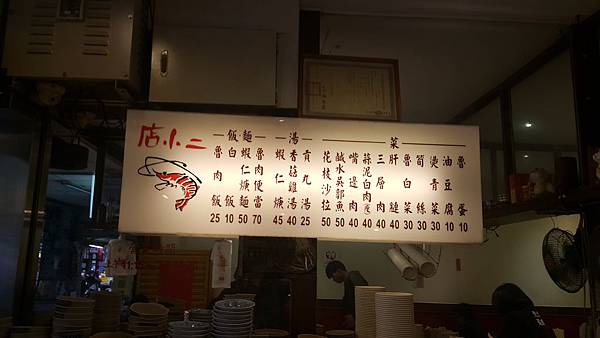 店小二
飯·麵
魯肉飯 25
白飯 10
蝦仁焿麵 50
魯肉便當 70
湯
蝦仁焿 45
香菇雞湯 40
貢丸湯 25
菜
花枝沙拉 50
鹹水吳郭魚 50
嘴邊肉 40
蒜泥白肉 40
三層肉 40
肝縺 40
魯白菜 30
筍絲 30
燙青菜 30
油豆腐 10
魯蛋 10